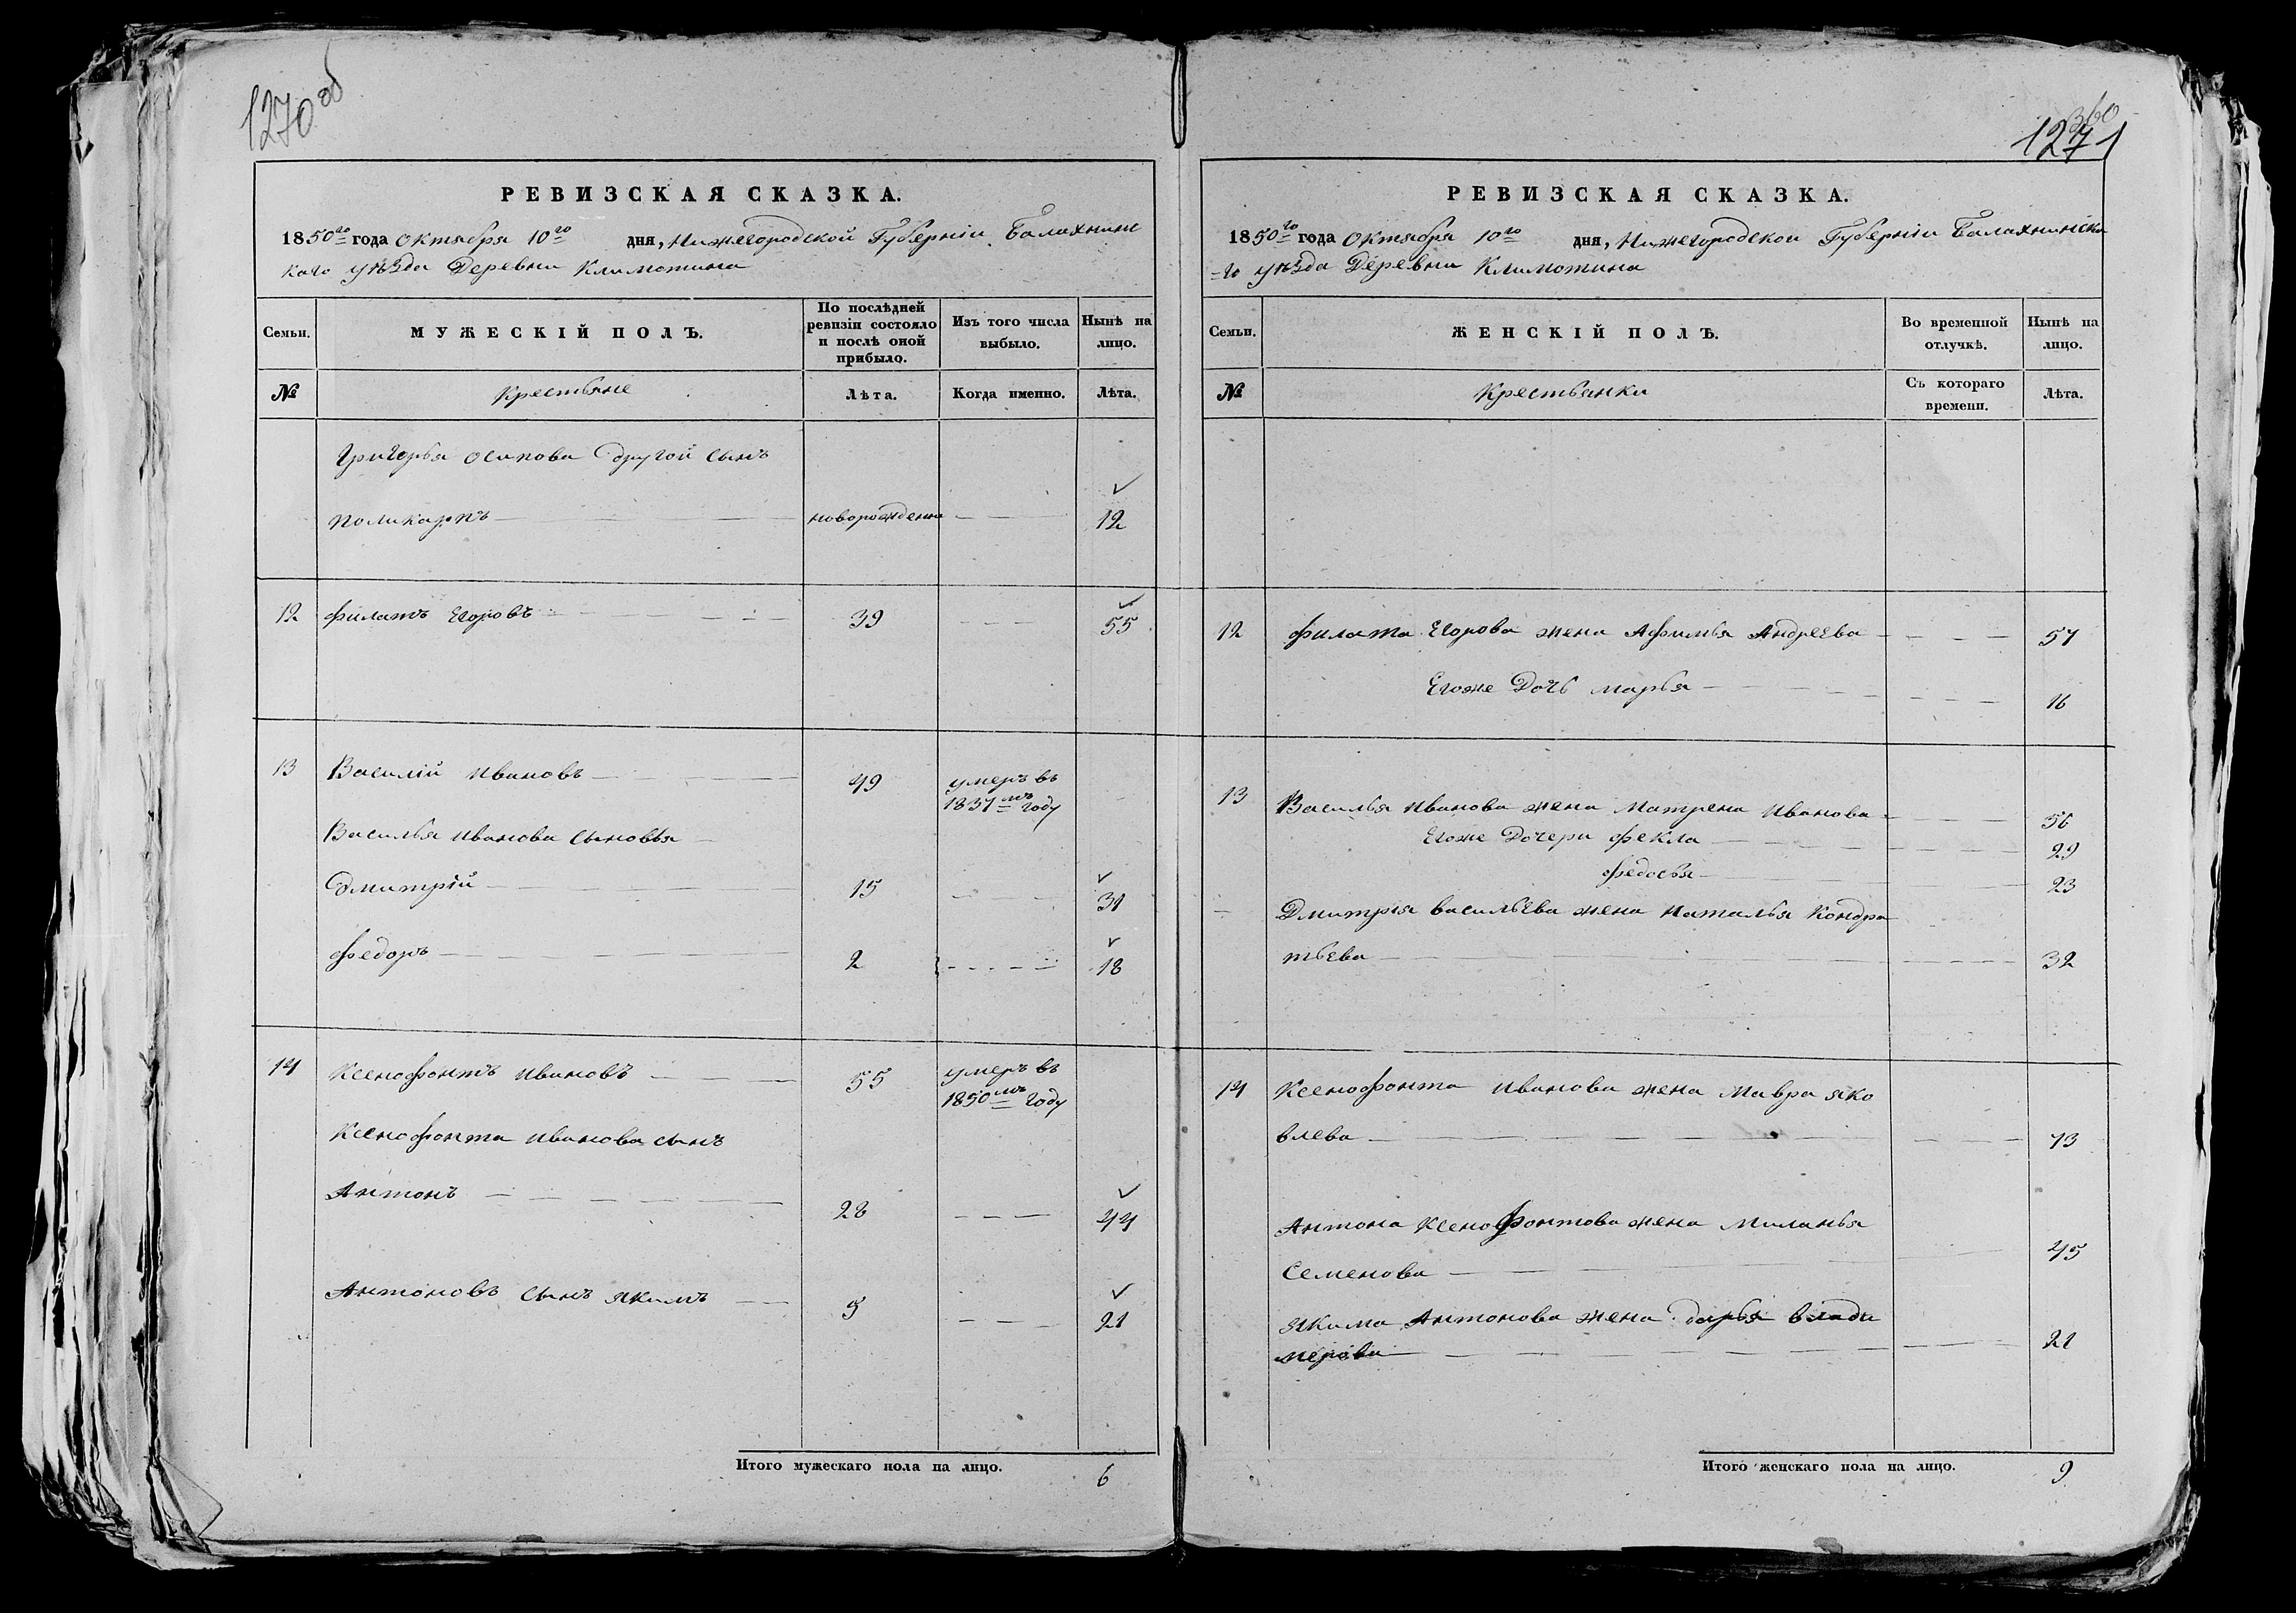 1270 об
РЕВИЗСКАЯ СКАЗКА.
1850го года Октября 10го дня, Нижегородской Губерніи Балахнинс
каго уѣзда Деревни Климотина
Семьи.
МУЖЕСКІЙ ПОЛЪ.
По послѣдней ревизіи состояло и послѣ оной прибыло.
Изъ того числа выбыло.
Нынѣ на лицо.
№
Крестьяне
Лѣта.
Когда именно.
Лѣта.
Григорья Осипова другой сынъ
Поликарпъ новорожденно 12
12 Филатъ Егоровъ 39 55
13 Василій Ивановъ 49 умеръ въ
1837мъ году
Василья Иванова сыновья
Дмитрій 15 31
Федоръ 2 18
14 Ксенофонтъ Ивановъ 55 умеръ въ
1850мъ году
Ксенофонта Иванова сынъ
Антонъ 28 44
Антоновъ сынъ Якимъ 5 21
Итого мужескаго пола на лицо. 6
360
1271
РЕВИЗСКАЯ СКАЗКА.
1850го года Октября 10го дня, Нижегородской Губерніи Балахнинска
го уѣзда Деревни Климотина
Семьи.
ЖЕНСКІЙ ПОЛЪ.
Во временной отлучкѣ.
Нынѣ на лицо.
№
Крестьянки
Съ котораго времени.
Лѣта.
12 Филата Егорова жена Афимья Андреева 57
Егоже Дочь Марья 16
13 Василья Иванова жена Матрена Иванова 56
Егоже Дочери Фекла 29
Федосья 23
Дмитрія Васильева жена Наталья Кондра
тьева 32
14 Ксенофонта Иванова жена Мавра Яко
влева 73
Антона Ксенофонтова жена Миланья
Семенова 45
Якима Антонова жена Дарья Влади
мерова 21
Итого женскаго пола на лицо. 9